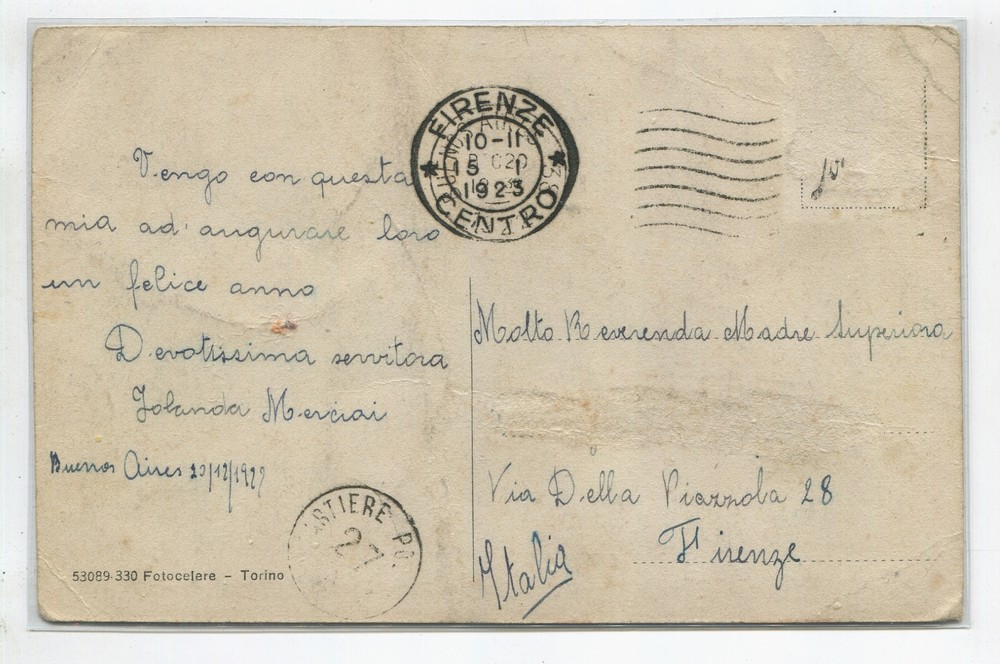 FIRENZE
10-11
5 1
1923
CENTRO
10
Vengo con questa
mia ad augurare loro
un felice anno
Devotissima servitora
Jolanda Merciai
Buenos Aires 20/12/1922
Molto Reverenda Madre Superiora
Via Della Piazzola 28
Firenze
Italia
PO.
27
53089-330 Fotocelere – Torino